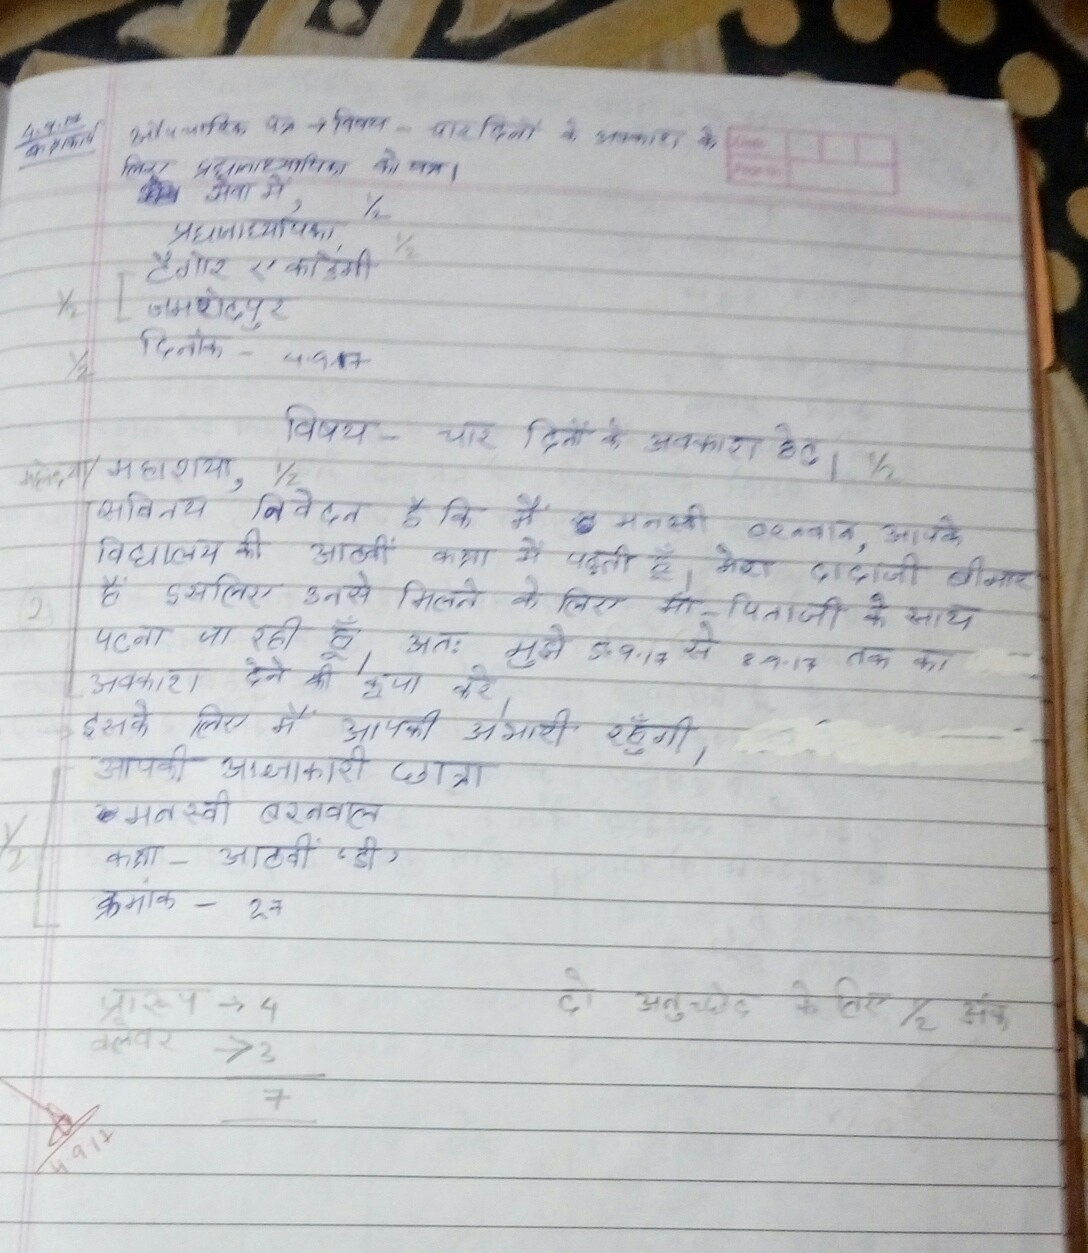 4.9.17
कक्षाकार्य
औपचारिक पत्र → विषय - चार दिनों के अवकाश के
लिए प्रधानाध्यापिका को पत्र।
सेवा में, 1/2
प्रधानाध्यापिका, 1/2
टैगोर एकाडेमी
1/2 जमशेदपुर
1/2 दिनांक - 4.9.17
विषय - चार दिनों के अवकाश हेतु। 1/2
महोदया/ महाशया, 1/2
सविनय निवेदन है कि मैं मनस्वी बरनवाल, आपके
विद्यालय की आठवीं कक्षा में पढ़ती हूँ। मेरा दादाजी बीमार
2 हैं इसलिए उनसे मिलने के लिए माँ-पिताजी के साथ
पटना जा रही हूँ। अतः मुझे 5.9.17 से 8.9.17 तक का
अवकाश देने की कृपा करें।
इसके लिए मैं आपकी अभारी रहूँगी।
आपकी आज्ञाकारी छात्रा
1/2 मनस्वी बरनवाल
कक्षा - आठवीं 'डी'
क्रमांक - 27
प्रारूप → 4 दो अनुच्छेद के लिए 1/2 अंक
कलेवर → 3
7
4.9.17